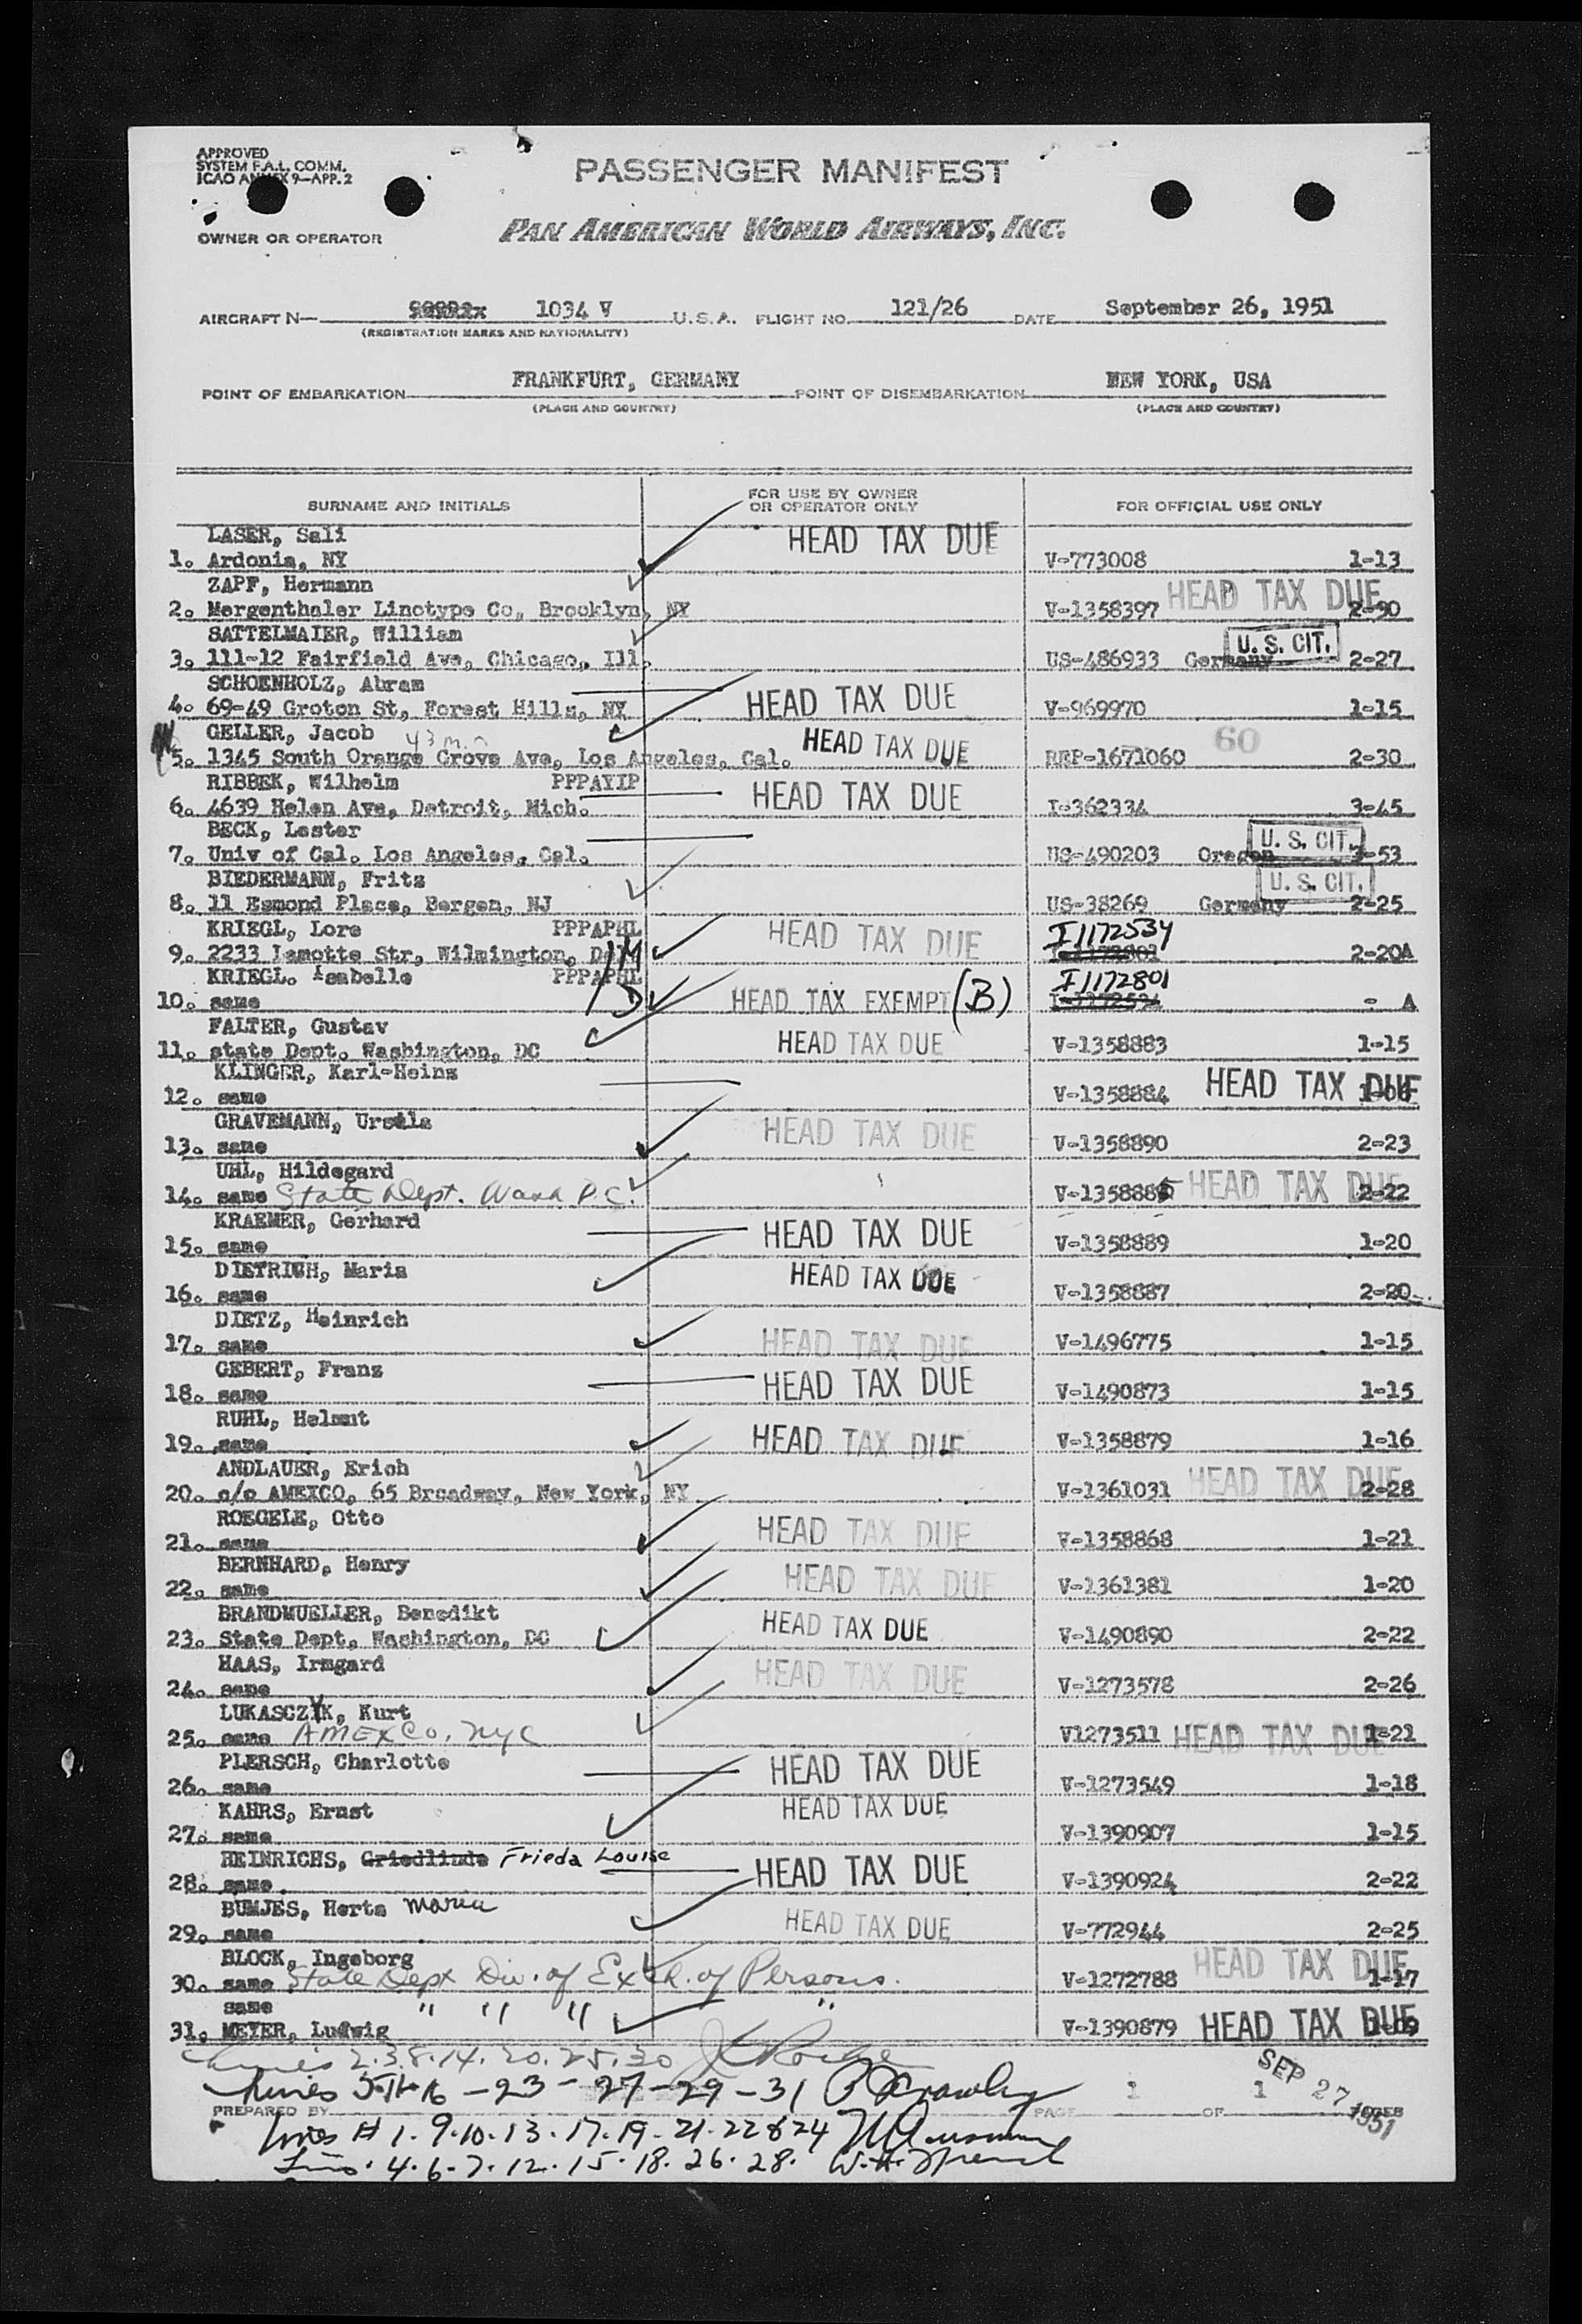 APPROVED
SYSTEM F.A.L. COMM.
ICAO ANNEX 9—APP. 2
PASSENGER MANIFEST
OWNER OR OPERATOR
PAN AMERICAN WORLD AIRWAYS, INC.
AIRCRAFT N— 1034 V U.S.A. FLIGHT NO. 121/26 DATE September 26, 1951
(REGISTRATION MARKS AND NATIONALITY)
POINT OF EMBARKATION FRANKFURT, GERMANY POINT OF DISEMBARKATION NEW YORK, USA
(PLACE AND COUNTRY) (PLACE AND COUNTRY)
SURNAME AND INITIALS FOR USE BY OWNER OR OPERATOR ONLY FOR OFFICIAL USE ONLY
LASER, Sali HEAD TAX DUE
1. Ardonia, NY V-773008 1-13
ZAPF, Hermann HEAD TAX DUE
2. Mergenthaler Linotype Co, Brooklyn, NY V-1358397 2-90
SATTELMAIER, William U.S. CIT.
3. 111-12 Fairfield Ave, Chicago, Ill. US-486933 Germany 2-27
SCHOENHOLZ, Abram HEAD TAX DUE
4. 69-49 Groton St, Forest Hills, NY V-969970 1-15
GELLER, Jacob 43 HEAD TAX DUE 60
5. 1345 South Orange Grove Ave, Los Angeles, Cal. REP-1671060 2-30
RIBBEK, Wilhelm PPPAYIP HEAD TAX DUE
6. 4639 Helen Ave, Detroit, Mich. I-362334 3-45
BECK, Lester U.S. CIT.
7. Univ of Cal. Los Angeles, Cal. US-490203 Oregon -53
BIEDERMANN, Fritz U.S. CIT.
8. 11 Esmond Place, Bergen, NJ US-38269 Germany 2-25
KRIEGL, Lore PPPAPHL HEAD TAX DUE I1172534
9. 2233 Lamotte Str, Wilmington, Del 1M 2-20A
KRIEGL. Isabelle PPPAPHL I1172801
10. same 1D HEAD TAX EXEMPT (B) - A
FALTER, Gustav
11. state Dept. Washington, DC HEAD TAX DUE V-1358883 1-15
KLINGER, Karl-Heinz
12. same V-1358884 HEAD TAX DUE 1-06
GRAVEMANN, Ursula HEAD TAX DUE
13. same V-1358890 2-23
UHL, Hildegard
14. same State Dept. Wash D.C. V-1358885 HEAD TAX DUE 2-22
KRAEMER, Gerhard HEAD TAX DUE
15. same V-1358889 1-20
DIETRICH, Maria HEAD TAX DUE
16. same V-1358887 2-20
DIETZ, Heinrich
17. same HEAD TAX DUE V-1496775 1-15
GEBERT, Franz HEAD TAX DUE
18. same V-1490873 1-15
RUHL, Helmut
19. same HEAD TAX DUE V-1358879 1-16
ANDLAUER, Erich
20. c/o AMEXCO, 65 Broadway, New York, NY V-1361031 HEAD TAX DUE 2-28
ROEGELE, Otto HEAD TAX DUE
21. same V-1358868 1-21
BERNHARD, Henry HEAD TAX DUE
22. same V-1361381 1-20
BRANDMUELLER, Benedikt HEAD TAX DUE
23. State Dept, Washington, DC V-1490890 2-22
HAAS, Irmgard HEAD TAX DUE
24. same V-1273578 2-26
LUKASCZYK, Kurt
25. same AMEXCO. NYC V1273511 HEAD TAX DUE 1-21
PLERSCH, Charlotte HEAD TAX DUE
26. same V-1273549 1-18
KAHRS, Ernst HEAD TAX DUE
27. same V-1390907 1-15
HEINRICHS, Griedlinde Frieda Louise HEAD TAX DUE
28. same V-1390924 2-22
BUMJES, Herta Maria HEAD TAX DUE
29. same V-772944 2-25
BLOCK, Ingeborg HEAD TAX DUE
30. same State Dept Div. of Exch. of Persons. V-1272788 1-17
same " " " "
31. MEYER, Ludwig V-1390879 HEAD TAX DUE 1-09
Lines 2.3.8.14.20.25.30
Lines 5-11-16-23-27-29-31 Crawley
PREPARED BY PAGE 1 OF 1 PAGES
SEP 27 1951
Lines # 1.9.10.13.17.19.21.22 & 24
Lines 4.6.7.12.15.18.26.28. W.H. French